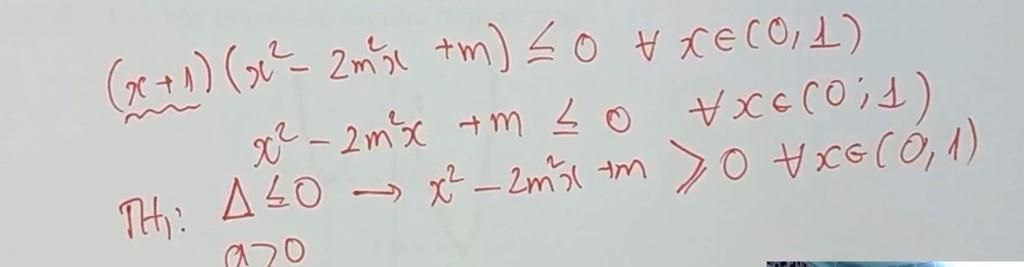 (x+1)(x² - 2m²x +m) ≤ 0 ∀ x∈(0,1)
x² - 2m²x +m ≤ 0 ∀x∈(0;1)
TH₁: Δ≤0 → x² - 2m²x +m ⩾ 0 ∀x∈(0,1)
a>0